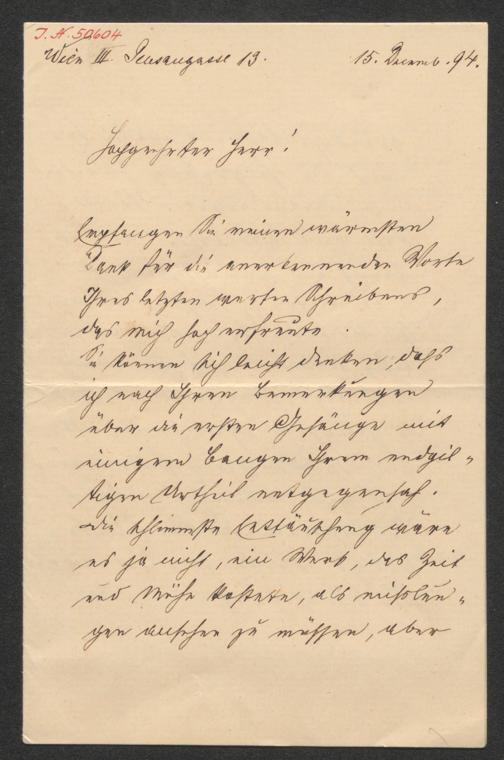 I. N. 50604
Wien III. Sensengasse 13. 15. Decemb. 94.
Hochgeehrter Herr!
Empfangen Sie meinen wärmsten
Dank für die anerkennenden Worte
Ihres letzten werten Schreibens,
das mich hoch erfreute.
Sie können sich leicht denken, daß
ich nach Ihren Bemerkungen
über die ersten Gesänge mit
einigem Bangen Ihrem endgil-
tigen Urtheil entgegensah.
Die schlimmste Enttäuschung wäre
es ja nicht, ein Werk, das Zeit
und Mühe kostete, als mißlun-
gen ansehen zu müssen, aber